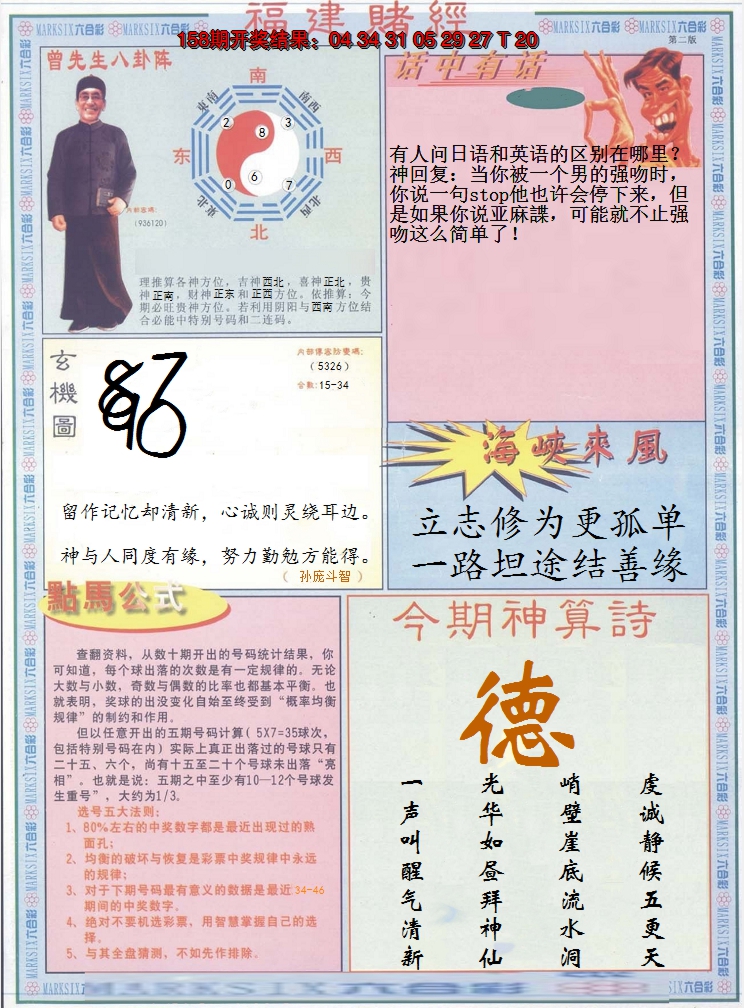 福建賭經
158期开奖结果：04 34 31 05 29 27 T 20
MARKSIX六合彩
第二版
曾先生八卦阵
南
东南
南西
2
8
3
东
西
0
6
7
東北
北西
北
内部密碼:
（936120）
理推算各神方位，吉神西北，喜神正北，贵
神正南，财神正东和正西方位。依推算：今
期必旺贵神方位。若利用阴阳与西南方位结
合必能中特别号码和二连码。
话中有话
有人问日语和英语的区别在哪里？
神回复：当你被一个男的强吻时，
你说一句stop他也许会停下来，但
是如果你说亚麻諜，可能就不止强
吻这么简单了！
玄機圖
内部傳密防變碼:
（5326）
合数:15-34
留作记忆却清新，心诚则灵绕耳边。
神与人同度有缘，努力勤勉方能得。
（ 孙庞斗智 ）
海峡來風
立志修为更孤单
一路坦途结善缘
點馬公式
查翻资料，从数十期开出的号码统计结果，你
可知道，每个球出落的次数是有一定规律的。无论
大数与小数，奇数与偶数的比率也都基本平衡。也
就表明，奖球的出没变化自始至终受到“概率均衡
规律”的制约和作用。
但以任意开出的五期号码计算（5X7=35球次，
包括特别号码在内）实际上真正出落过的号球只有
二十五、六个，尚有十五至二十个号球未出落“亮
相”。也就是说：五期之中至少有10—12个号球发
生重号”，大约为1/3。
选号五大法则：
1、80%左右的中奖数字都是最近出现过的熟
面孔；
2、均衡的破坏与恢复是彩票中奖规律中永远
的规律；
3、对于下期号码最有意义的数据是最近34-46
期间的中奖数字。
4、绝对不要机选彩票，用智慧掌握自己的选
择。
5、与其全盘猜测，不如先作排除。
今期神算詩
德
虔诚静候五更天
峭壁崖底流水洞
光华如昼拜神仙
一声叫醒气清新